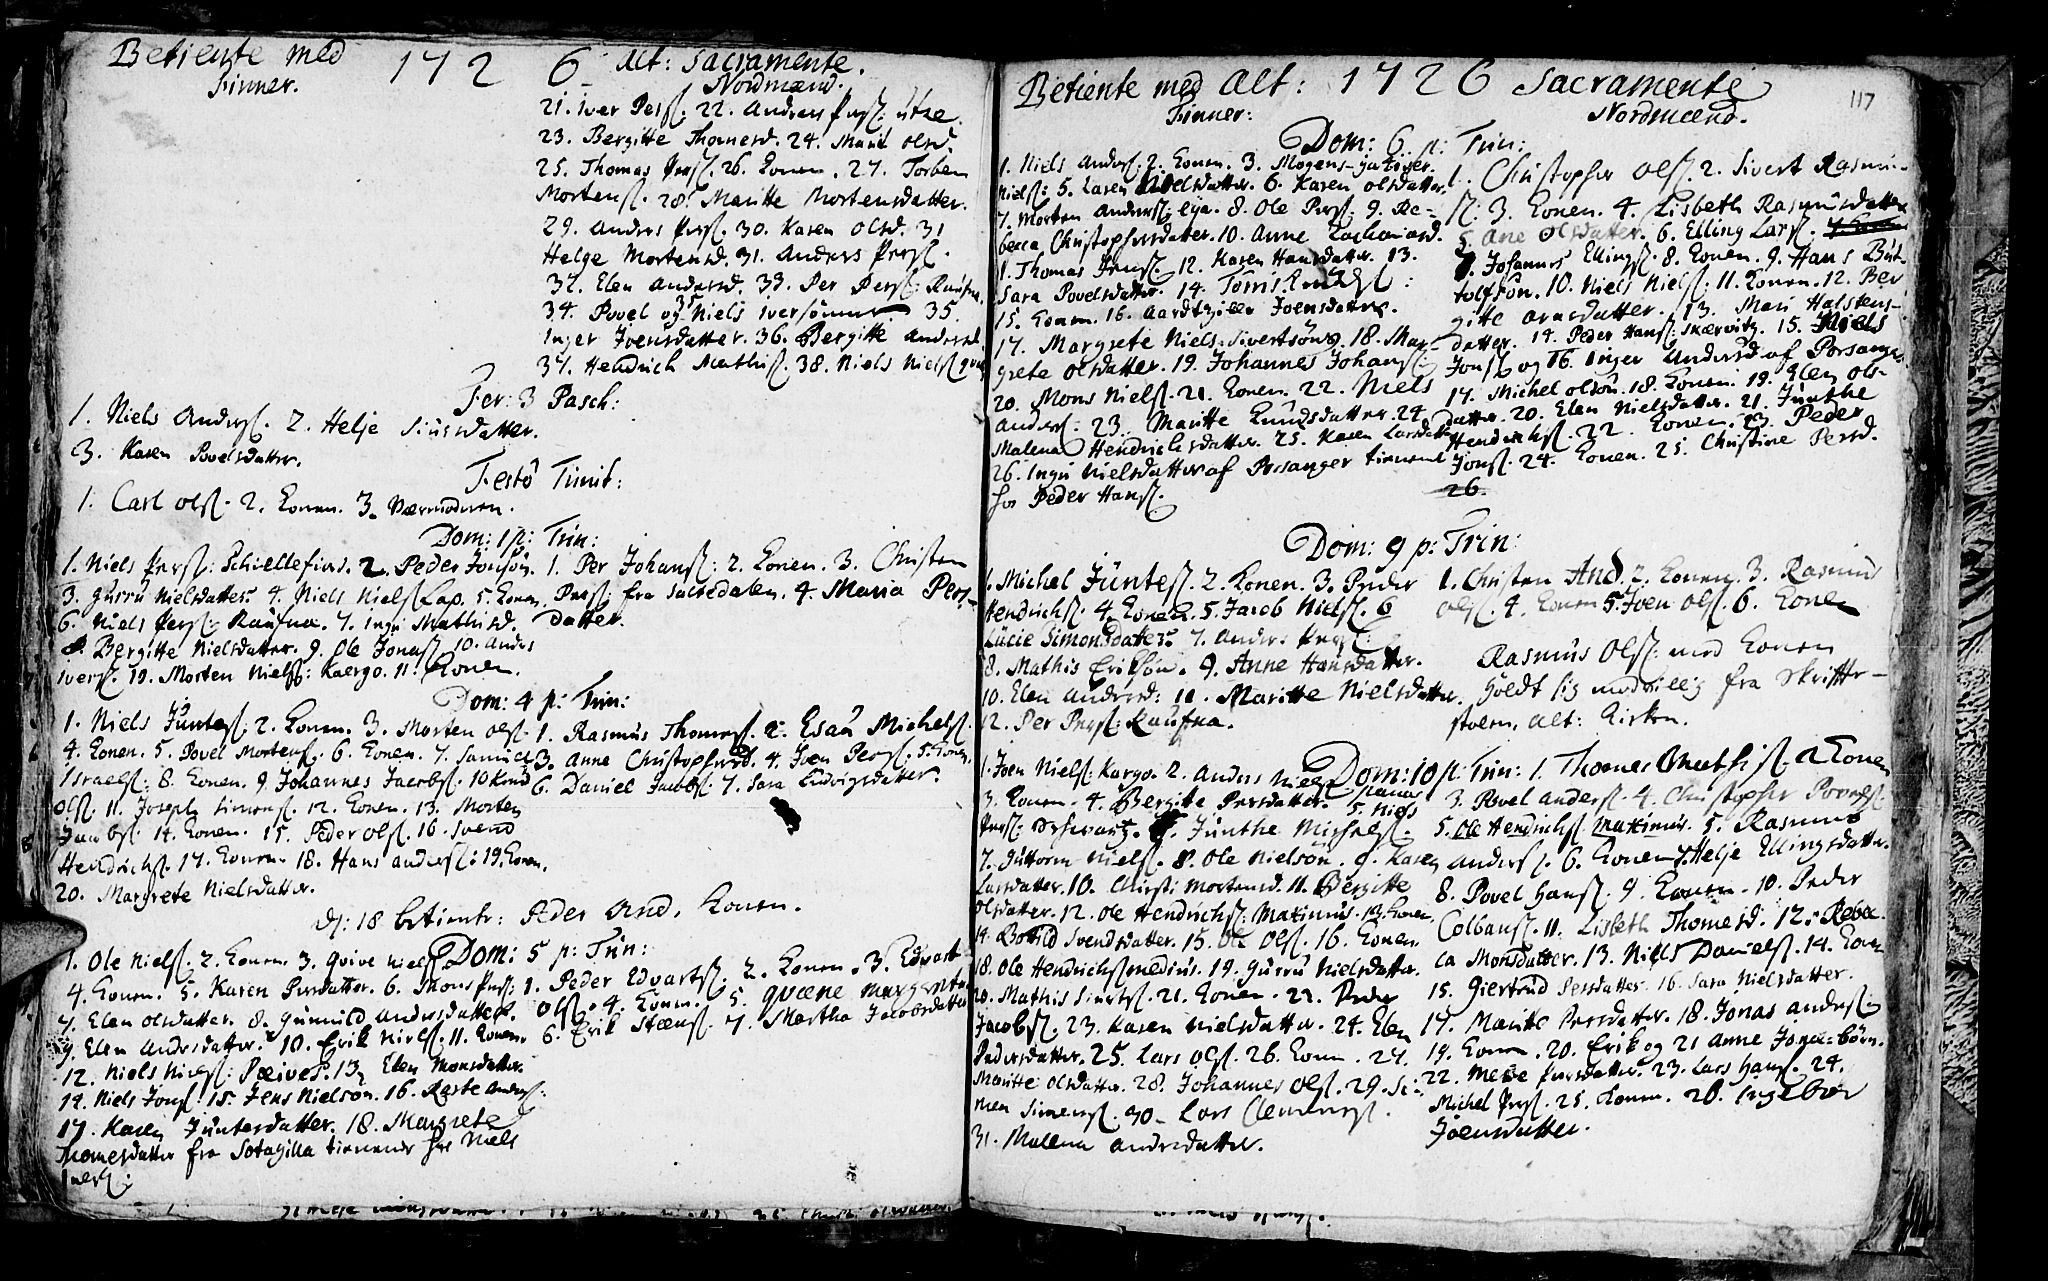 Betiente med 1726 Alt: Sacramente.
Finner. Nordmænd:
21. Iver Persß: 22. Anders Persß:
23. Bergitte Thomesd. 24. Marit Olsd.
25. Thomas Persß. 26. Konen. 27. Torben
Mortensß. 28. Maritte Mortensdatter.
29. Anders Persß. 30. Karen Olsd. 31
Helge Mortensd. 31. Anders Persß.
32. Elen Andersd. 33. Per Persß: Raufna.
34. Povel og 35 Niels Iversønner 35.
Inger Joensdatter. 36. Bergitte Andersd.
37. Hendrich Mathisß. 38. Niels Nielsß
Fer: 3 Pasch:
1. Niels Andersß. 2. Helje Siursdatter.
3. Karen Povelsdatter.
Festo Trinit:
1. Carl Olsß. 2. Konen. 3. Værmoderen.
Dom: 1 p: Trin:
1. Niels Persß: Schiellefiord. 2. Peder Jonsøn.
3. Gurru Nielsdatter. 4. Niels Nielsß Lap. 5. Konen.
6. Niels Persß: Raufna. 7. Ingri Mathisd.
8. Bergitte Nielsdatter. 9. Ole Jonasß. 10. Anders
Iversß. 10. Morten Nielsß: Kaergo. 11. Konen.
1. Per Johansß: 2. Konen. 3. Christen
Persß: fra Saltedalen. 4. Maria Pers-
datter.
Dom: 4 p: Trin:
1. Niels Juntesß: 2. Konen. 3. Morten Olsß.
4. Konen. 5. Povel Mortensß. 6. Konen. 7. Samuel
Israelsß: 8. Konen. 9. Johannes Jacobsß. 10 Knud
Olsß. 11. Joseph Simonsß. 12. Konen. 13. Morten
Jacobsß: 14. Konen. 15. Peder Olsß. 16. Svend
Hendrichsß. 17. Konen. 18. Hans Andersß: 19. Konen.
20. Margrete Nielsdatter.
1. Rasmus Thomesß. 2. Esau Michelsß.
3. Anne Christophersd. 4. Joen Persß: 5. Konen.
6. Daniel Jacobsß: 7. Sara Ludvigsdatter.
D: 18 betiente: Peder And. Konen.
Dom: 5 p: Trin:
1. Ole Nielsß. 2. Konen. 3. Qvive Nielsß
4. Konen. 5. Karen Persdatter. 6. Mons Persß:
7. Elen Olsdatter. 8. Gunnild Andersdatter.
9. Elen Andersdatter. 10. Erik Nielsß. 11. Konen.
12. Niels Nielsß: Pæives. 13. Elen Monsdatter.
14. Niels Jonsß. 15. Jens Nielsøn. 16. Raste Andersß:
17. Karen Juntesdatter. 18. Margrete
Thomesdatter fra Sotagilla tienende hos Niels
Iversß:
1. Peder Edvartsß: 2. Konen. 3. Edvart
Olsß. 4. Konen. 5. Qvæne Margrete
6. Erik Steensß. 7. Martha Jacobsdatter
Betiente med Alt: 1726 Sacramente 117
Finner: Nordmænd.
Dom: 6. p: Trin:
1. Niels Andersß. 2. Konen. 3. Mogens
Nielsß: 5. Karen Nielsdatter. 6. Karen Olsdatter.
7. Morten Andersß: Eija. 8. Ole Persß: 9. Re-
becca Christophersdatter. 10. Anne Zachariasd.
1. Thomas Jensß. 12. Karen Hansdatter. 13.
Sara Povelsdatter. 14. Tomis
15. Konen. 16. Joensdatter.
17. Margrete Niels Sivertsøns. 18. Mar-
grete Olsdatter. 19. Johannes Johansß:
20. Mons Nielsß. 21. Konen. 22. Niels
Andersß: 23. Maritte Knudsdatter. 24.
Malena Hendrichsdatter. 25. Karen Larsdatter
26. Ingri Nielsdatter af Porsanger tienende
hos Peder Hansß.
1. Christopher Olsß. 2. Sivert Rasmu-
sß: 3. Konen. 4. Lisbeth Rasmusdatter
5. Ane Olsdatter. 6. Elling Larsß.
7. Johannes Ellingsß. 8. Konen. 9. Hans But-
tolfsøn. 10. Niels Nielsß: 11. Konen. 12. Ber
gitte Arnesdatter. 13. Mari Halstens-
datter. 14. Peder Hansß: Skærvitz. 15. Niels
Jonsß og 16. Inger Andersd af Porsanger
17. Michel Olsøn. 18. Konen. 19. Elen Ols-
datter. 20. Elen Nielsdatter. 21. Junthe
Hendrichsß. 22. Konen. 23. Peder
Jonsß. 24. Konen. 25. Christine Persd.
26.
Dom: 9 p: Trin:
1. Michel Juntesß. 2. Konen. 3. Peder
Hendrichsß: 4. Konen. 5. Jacob Nielsß. 6
Lucie Simonsdatter. 7. Anders Persß:
8. Mathis Eriksøn. 9. Anne Hansdatter.
10. Elen Andersd: 11. Maritte Nielsdatter.
12. Per Persß: Raufna.
1. Christen And. 2. Konen. 3. Rasmus
Olsß. 4. Konen 5. Joen Olsß. 6. Konen
Rasmus Olsß: med Konen
holdt sig modvillig fra Skriffte-
stolen, Alt: Kirken.
Dom: 10 p: Trin:
1. Joen Nielsß: Kargo. 2. Anders Nielsß
3. Konen. 4. Bergitte Persdatter. 5. Niels
Persß: Schwartz. 6. Junthe Michelsß.
7. Guttorm Nielsß. 8. Ole Nielsøn. 9. Karen
Larsdatter. 10. Christi Mortensd. 11. Bergitte
Olsdatter. 12. Ole Hendrichsß: Maximus. 13. Konen.
14. Bottild Svendsdatter. 15. Ole Olsß. 16. Konen.
18. Ole Hendrichsß medius. 19. Gurru Nielsdatter.
20. Mathis Siversß. 21. Konen. 22. Peder
Jacobsß. 23. Karen Nielsdatter. 24. Elen
Pedersdatter. 25. Lars Olsß. 26. Konen. 27.
Maritte Olsdatter. 28. Johannes Olsß. 29. Si-
men Simensß. 30. Lars Clemmensß.
31. Malena Andersdatter.
1. Thomas Mathisß. 2 Konen
3. Povel Andersß. 4. Christopher Povelsß.
5. Ole Hendrichsß Maximus. 5. Rasmus
Andersß. 6. Konen 7. Helje Ellingsdatter.
8. Povel Hansß: 9. Konen. 10. Peder
Colbansß. 11. Lisbeth Thomesd. 12. Rebec-
ca Monsdatter. 13. Niels Danielsß. 14. Konen
15. Giertrud Persdatter. 16. Sara Nielsdatter.
17. Maritte Persdatter. 18. Jonas Andersß:
19. Konen. 20. Erik og 21 Anne Jonæ-børn.
22. Mette Persdatter. 23. Lars Hansß. 24.
Michel Persß. 25. Konen. 26. Ingebor
Joensdatter.